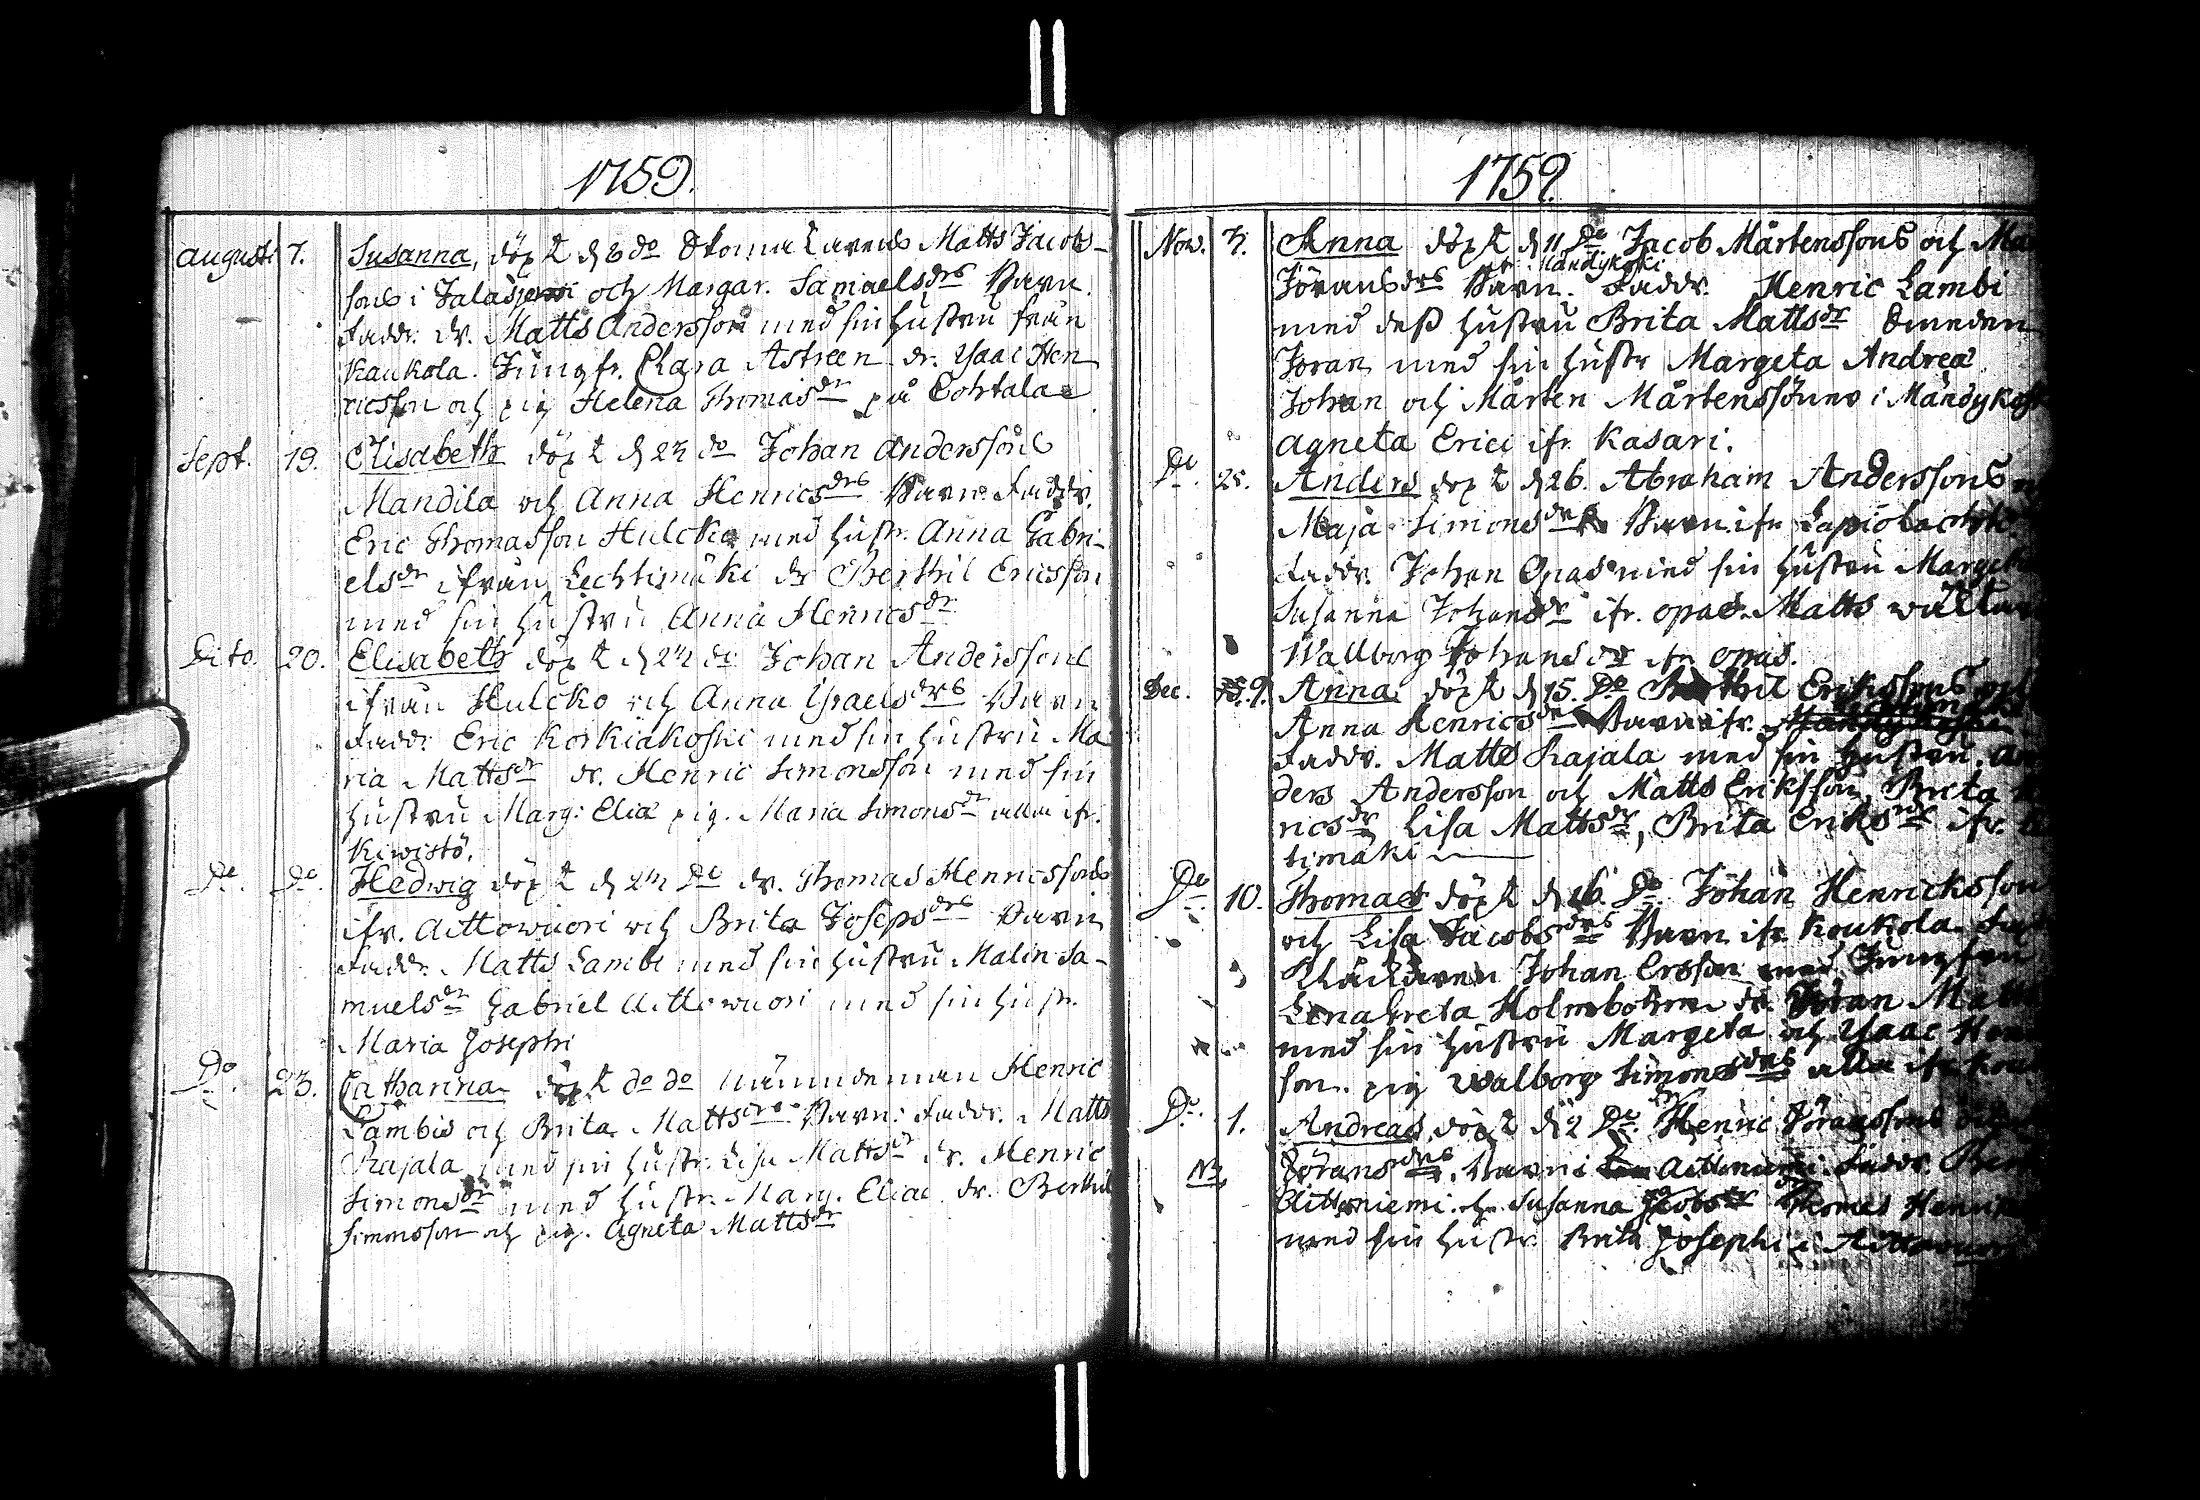 1759.
August 7. Susanna, döpt d 8 do Skomakarens Matts Jacobs-
sons i Jalasjerwi och Margar. Samuelsdrs Barn.
Faddr. dr. Matts Andersson med sin hustru från
Kaukola. Jungfr. Clara Astreen dr. Isaac Hen
ricsson och pig Helena Thomasdr på
Sept. 19. Elisabeth döpt d 23 do Johan Anderssons
Mandila och Anna Henricsdrs Barn. Faddr.
Eric Thomasson Hulcko med hustr. Anna Gabri-
elsdr ifrån Lechtimäki dr Berthil Ericsson
med sin hustru Anna Henricsdr
Dito. 20. Elisabeth döpt d 23 do Johan Anderssons
ifrån Hulcko och Anna Israelsdrs Barn
Faddr Eric Korkiakoski med sin hustru Ma
ria Mattsdr dr. Henric Simonsson med sin
hustru Marg: Eliæ pig. Maria Simonsdr alla ifr.
Kiwistö.
Do. Do. Hedwig döpt d 23 Do dr. Thomas Henricssons
ifr. Aittowuori och Brita Josepsdrs Barn
Faddr. Matts Lambi med sin hustru Malin Sa-
muelsdr Gabriel Aittowuori med sin hustr.
Maria Josephi
Do. 23. Catharina döpt do do Nämndeman Henric
Lambis och Brita Mattsdrs Barn. Faddr. Matts
Rajala med sin hustr. Lisa Mattsdr dr. Henric
Simonsdr med hustr. Marg. Eliae dr. Berthil
Simonsson och pig. Agneta Mattsdr
1759.
Nov. 7. Anna döpt d 11 Do Jacob Mårtenssons och
ifr. Mandykoski
Jöransdrs Barn. Faddr. Henric Lambi
med dess hustru Brita Mattsdr Smeden
Joran med sin hustr Margeta Andreæ
Johan och Mårten Mårtenssöner i
Agneta Erici ifr. Kasari.
Do. 25. Anders döpt d 26. Abraham Anderssons
Maja Simonsdrs Barn ifr
Faddr. Johan Opas med sin hustru
Susanna Johansdr ifr. Opas. Matts
Wallborg Johansdr ifr Opas.
Dec. 9. Anna döpt d 15. Do Berthil Erikssons
Anna Henricsdrs Barn ifr.
Faddr. Matts Rajala med sin hustru. An
ders Andersson och Matts Eriksson, Brita
ricsdr Lisa Mattsdr, Brita Eriksdr ifr.
timäki
Do. 10. Thomas döpt d 16. Do. Johan Henricksson
och Lisa Jacobsdrs Barn ifr Koukola.
Klåckaren Johan Ersson med Jungfrun
Lena Greta Holmbohm dr. Joran
med sin hustru Margeta och Isaac
son. pig Walborg Simonsdrs alla ifr
Do. 1. Andreas döpt d 2 Do Henric Joranssons
NB Joransdrs. Barn i Aittoniemi. Faddr.
Aittoniemi och Susanna Jacobsdr Thomas
med sin hustr Brita Josephi i